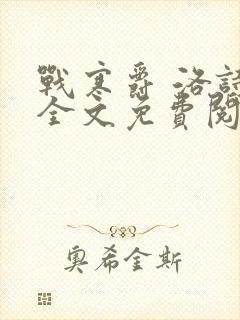 戰寒爵 洛詩
全文免費閱
奧希金斯